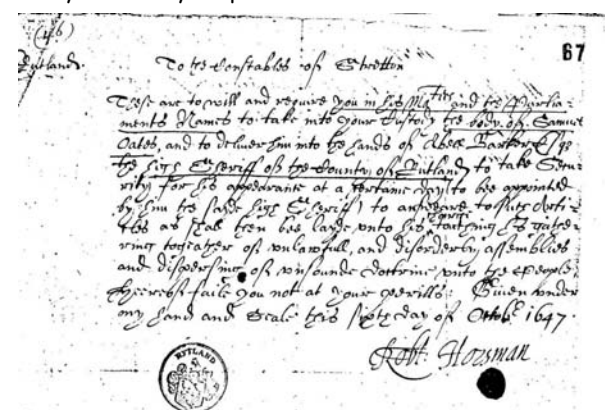 (46)
67
Rutland.
To the Constables of Stretton
These are to will and require you in his Maties and the Parlia=
ments Names to take into your Custody the body of Samuel
Oates, and to deliver him into the hands of Abell Barker Esqe
the high Sheriff of the County of Rutland to take Secu=
rity for his appearance at a certaine day (to bee appointed
by him the sayde high Sheriff) to answeare to such Arti=
cles as shal then bee layde unto his charge touching his gathe=
ring togeather of unlawfull, and disorderly assemblies
and dispersing of unsounde doctrine unto the People.
Heereof faile you not at your perills. Given under
my hand and Seale this sixth day of Octobr. 1647.
Robt. Horsman
RUTLAND